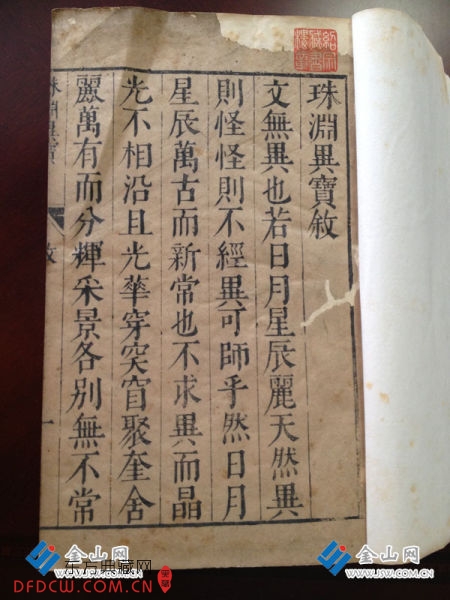 紹宗
藏書
樓章
珠淵異寶敘
文無異也若日月星辰麗天然異
則怪怪則不經異可師乎然日月
星辰萬古而新常也不求異而晶
光不相沿且光華穿突窅聚奎舍
麗萬有而分輝采景各別無不常
珠淵異寶
敘
一
金山网
WWW.JSW.COM.CN
东方典藏网
DFDCW.CN
金山网
WWW.JSW.COM.CN